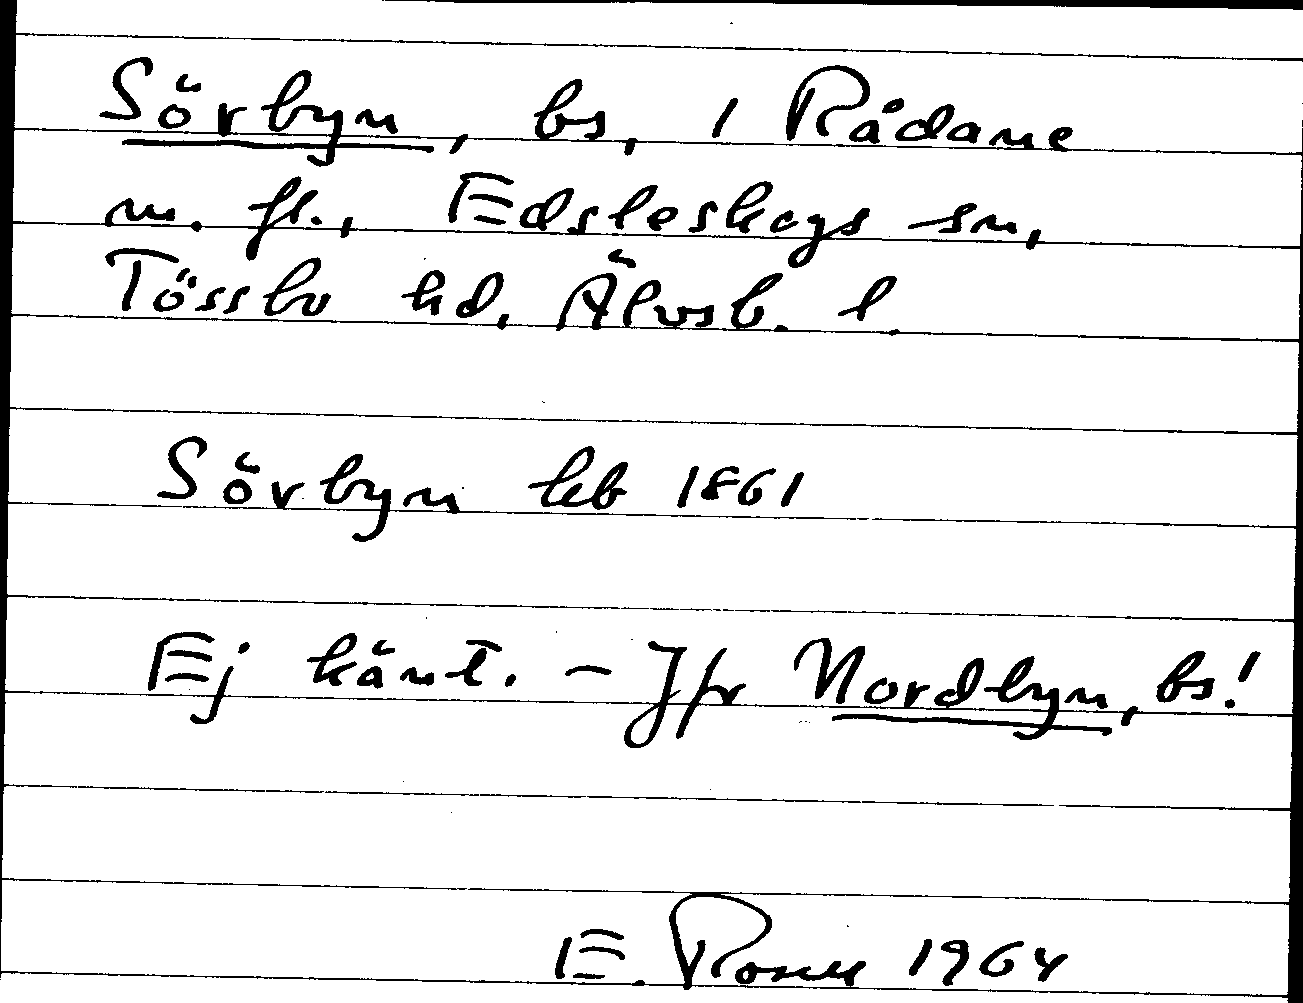 Sörbyn, bs, 1 Rådane
m. fl., Edsleskogs sn,
Tössbo hd, Älvsb. l.
Sörbyn hfb 1861
Ej känt. – Jfr Nordbyn, bs!
E. Rosell 1964